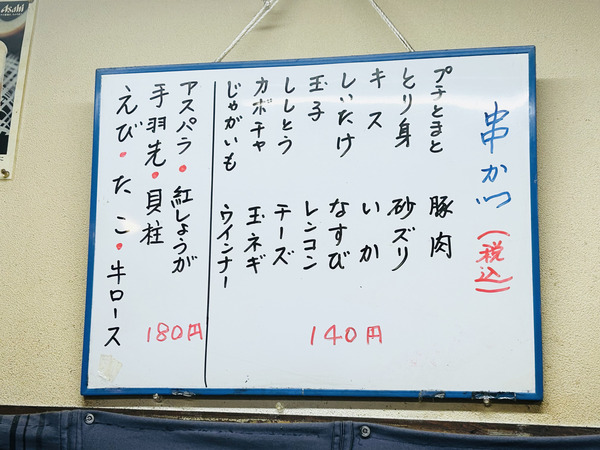 串かつ (税込)
プチとまと 豚肉
とり身 砂ズリ
キス いか
しいたけ なすび
玉子 レンコン
ししとう チーズ
カボチャ 玉ネギ
じゃがいも ウインナー
140円
アスパラ・紅しょうが
手羽先・貝柱
えび・たこ・牛ロース
180円
Asahi